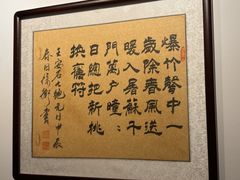 爆竹聲中一
歲除春風送
暖入屠蘇千
門萬戶曈〻
日總把新桃
換舊符
王安石七絕元日甲辰
春月書